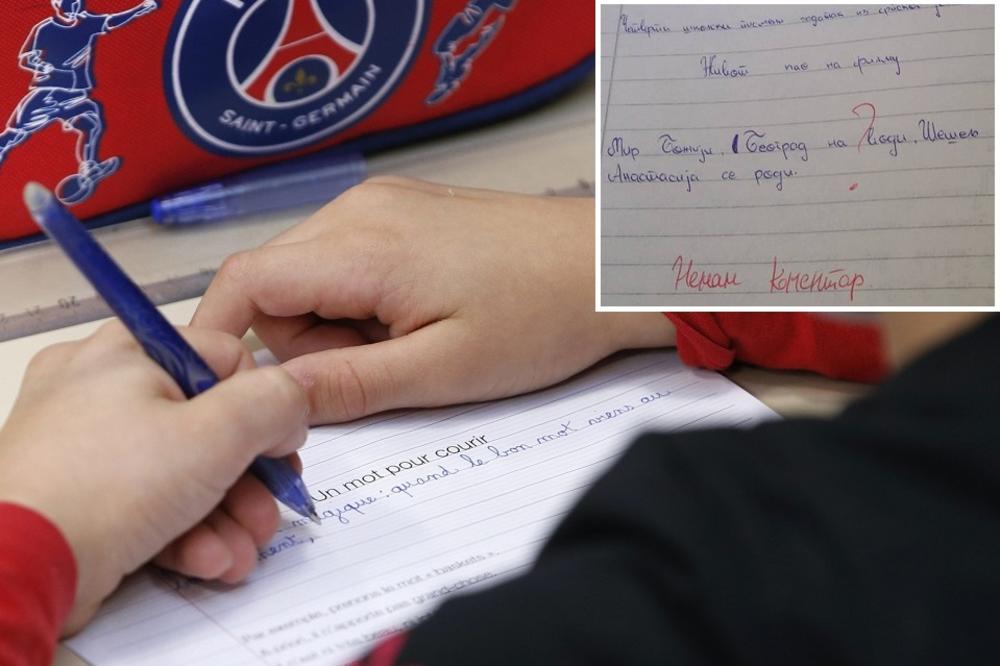 SAINT-GERMAIN
20
Un mot pour courir
magique : quand le bon mot viens au
ment,
Par exemple, prenons le mot « baskets ».
A priori, il n'apporte pas grand-chose.
Четврти школски писмени задатак из српског
Живот као на филму
?
Мир Божији. Београд на води. Шешељ
Анастасија се роди.
Немам коментар.